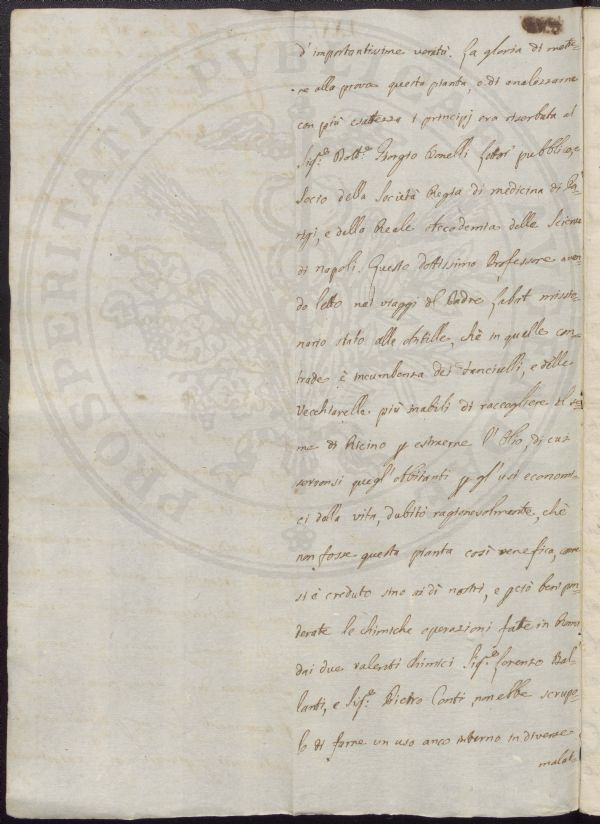 d'importantissime verità. La gloria di mette-
re alla prova questa pianta, e di analizzarne
con più esatezza i principj era riserbata al
Sig.e Dott.e Giorgio Bonelli Lettor pubblico, e
Socio della Società Regia di medicina di Pa-
rigi, e della Reale Accademia delle Scienze
di Napoli. Questo dottissimo Professore aven-
do letto nei viaggi del Padre Labat missio-
nario stato alle Antille, chè in quelle con-
trade è incumbenza dei fanciulli, e delle
Vecchiarelle più inabili di raccogliere il se-
me di Ricino p estraerne l'Olio, di cui
servonsi quegl'abbitanti p gl'usi economi-
ci della vita, dubitò ragionevolmente, chè
non fosse questa pianta così venefica, come
si è creduto sino ai dì nostri, e pciò ben pon-
derate le chimiche operazioni fatte in Roma
dai due valenti chimici Sig.e Lorenzo Bal-
lanti, e Sig.e Pietro Conti, non ebbe scrupo-
lo di farne un uso anco interno in diverse
malat-
PROSPERITATI PVBLICAE